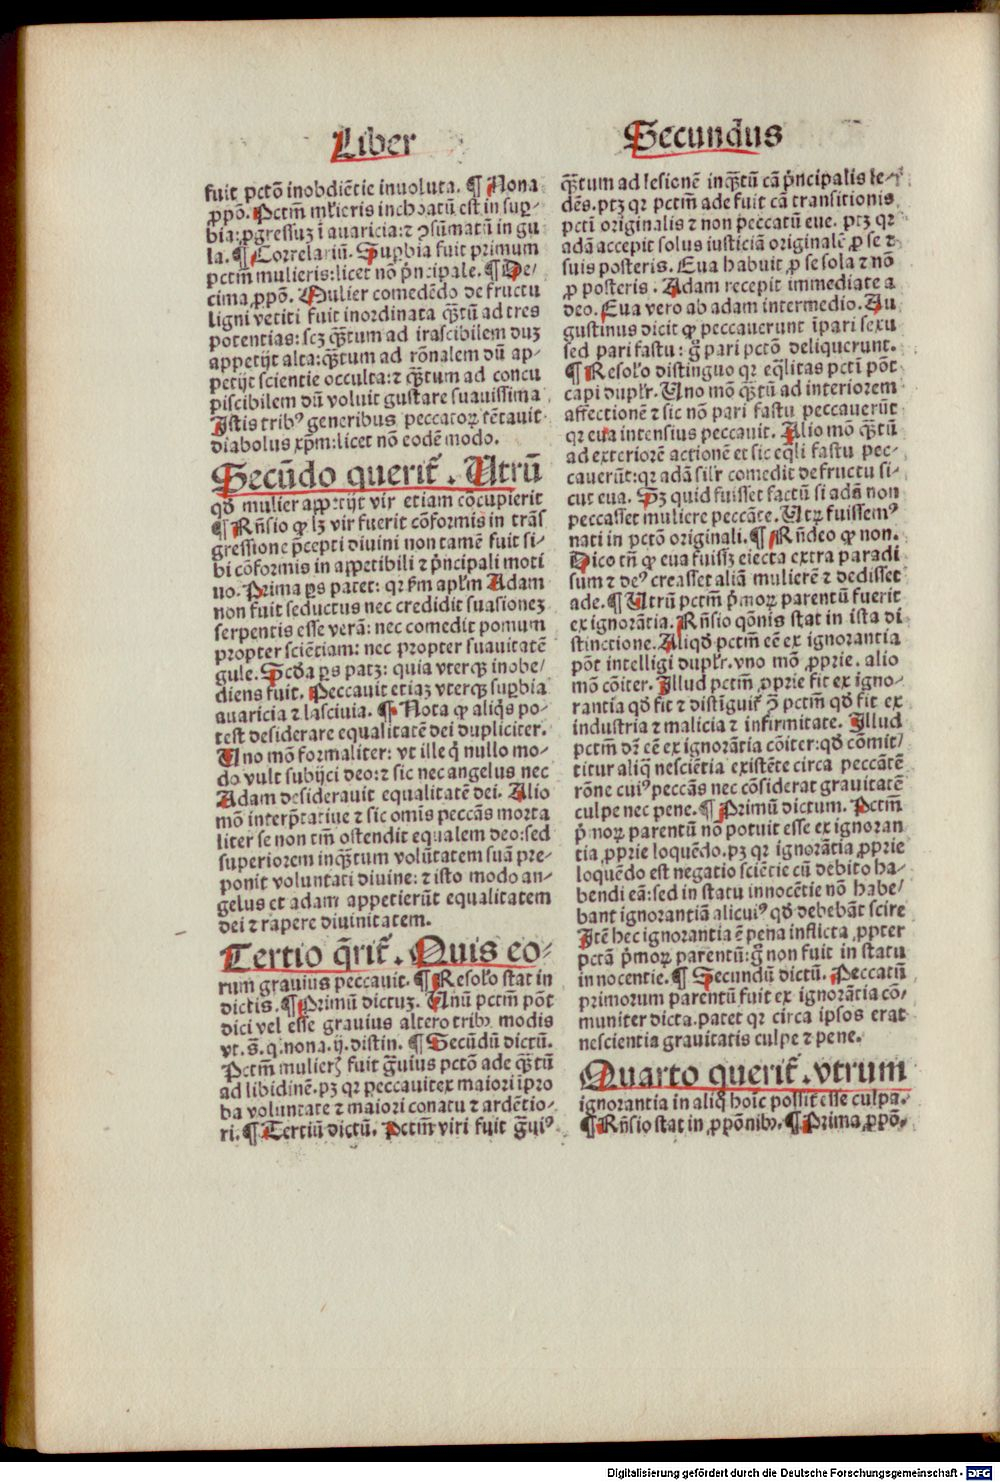 Liber
Secundus
fuit pctō inobdiētie inuoluta. ¶ Nona
ꝓpō. Pctm̄ mĺieris inchoatū est in suꝑ-
bia: ꝓgressuꝫ ī auaricia: ⁊ ↄsūmatū in gu
la. ¶ Correlariū. Suꝑbia fuit primum
pctm̄ mulieris: licet nō p̄ncipale. ¶ De/
cima ꝓpō. Mulier comedēdo de fructu
ligni vetiti fuit inordinata q̄ꝫtū ad tres
potentias: scꝫ q̄ꝫtum ad irascibilem duꝫ
appetijt alta: q̄ꝫtum ad rōnalem dū ap-
petijt scientie occulta: ⁊ q̄ꝫtum ad concu
piscibilem dū voluit gustare suauissima
Istis tribꝰ generibus peccatoꝝ tētauit
diabolus xp̄m: licet nō eodē modo.
Secūdo querit̄. Utrū
qđ mulier appetijt vir etiam cōcupierit
¶ Rn̄sio ꝙ lꝫ vir fuerit cōformis in trās
gressione p̄cepti diuini non tamē fuit si-
bi cōformis in appetibili ⁊ p̄ncipali moti
uo. Prima ꝑs patet: qꝛ ẜm apłm Adam
non fuit seductus nec credidit suasionez
serpentis esse verā: nec comedit pomum
propter sciētiam: nec propter suauitatē
gule. Scđa ꝑs patꝫ: quia vterqꝫ inobe/
diens fuit. Peccauit etiaꝫ vterqꝫ suꝑbia
auaricia ⁊ lasciuia. ¶ Nota ꝙ aliq̄s po-
test desiderare equalitatē dei dupliciter.
Uno mō formaliter: vt ille q̄ nullo mo-
do vult subijci deo: ⁊ sic nec angelus nec
Adam desiderauit equalitatē dei. Alio
mō interp̄tatiue ⁊ sic omīs peccās morta
liter se non tm̄ ostendit equalem deo: sed
superiorem inq̄ꝫtum volūtatem suā pre-
ponit voluntati diuine: ⁊ isto modo an-
gelus et adam appetierūt equalitatem
dei ⁊ rapere diuinitatem.
Tertio q̄rit̄. Quis eo-
rum grauius peccauit. ¶ Resolo stat in
dictis. ¶ Primū dictuꝫ. Unū pctm̄ pōt
dici vel esse grauius altero tribꝰ modis
vt. s̄. q. nona. ij. distin. ¶ Secūdū dictū.
Pctm̄ mulieꝝ fuit ḡuius pctō ade q̄ꝫtū
ad libidinē. pꝫ qꝛ peccauit ex maiori īpro
ba voluntate ⁊ maiori conatu ⁊ ardētio-
ri. ¶ Tertiū dictū. Pctm̄ viri fuit ḡuiꝰ
q̄ꝫtum ad lesionē inq̄ꝫtū cā p̄ncipalis le-
dēs. ptꝫ qꝛ pctm̄ ade fuit cā transitionis
pcti originalis ⁊ non peccatū eue. ptꝫ qꝛ
adā accepit solus iusticiā originalē ꝓ se ⁊
suis posteris. Eua habuit ꝓ se sola ⁊ nō
ꝓ posteris. Adam recepit immediate a
deo. Eua vero ab adam intermedio. Au
gustinus dicit ꝙ peccauerunt īpari sexu
sed pari fastu: g̊ pari pctō deliquerunt.
¶ Resolo distinguo qꝛ eq̄litas pcti pōt
capi dupłr. Uno mō q̄ꝫtū ad interiorem
affectionē ⁊ sic nō pari fastu peccauerūt
qꝛ eua intensius peccauit. Alio mō q̄ꝫtū
ad exteriorē actionē et sic eq̄li fastu pec-
cauerūt: qꝛ adā silr̄ comedit de fructu si-
cut eua. Sꝫ quid fuisset factū si adā non
peccasset muliere peccāte. Utꝝ fuissemꝰ
nati in pctō originali. ¶ Rn̄deo ꝙ non.
Dico tn̄ ꝙ eua fuissꝫ eiecta extra paradi
sum ⁊ deꝰ creasset aliā mulierē ⁊ dedisset
ade. ¶ Utrū pctm̄ p̄moꝝ parentū fuerit
ex ignorātia. Rn̄sio qōnis stat in ista di
stinctione. Aliqđ pctm̄ eē ex ignorantia
pōt intelligi dupłr. vno mō ꝓprie. alio
mō cōiter. Illud pctm̄ ꝓprie fit ex igno-
rantia qđ fit ⁊ distīguit̄ ꝯ̄ pctm̄ qđ fit ex
industria ⁊ malicia ⁊ infirmitate. Illud
pctm̄ dr̄ eē ex ignorātia cōiter: qđ cōmit/
titur aliq̄ nesciētia existēte circa peccātē
rōne cuiꝰ peccās nec cōsiderat grauitatē
culpe nec pene. ¶ Primū dictum. Pctm̄
p̄moꝝ parentū nō potuit esse ex ignoran
tia ꝓprie loquēdo. pꝫ qꝛ ignorātia ꝓprie
loquēdo est negatio sciētie cū debito ha-
bendi eā: sed in statu innocētie nō habe/
bant ignorantiā alicuiꝰ qđ debebāt scire
Itē hec ignorantia ē pena inflicta ꝓpter
pctā p̄moꝝ parentū: g̊ non fuit in statu
innocentie. ¶ Secundū dictū. Peccatū
primorum parentū fuit ex ignorātia cō/
muniter dicta. patet qꝛ circa ipsos erat
nescientia grauitatis culpe ⁊ pene.
Quarto querit̄. vtrum
ignorantia in aliq̊ hoīe possit esse culpa.
¶ Rn̄sio stat in ꝓpōnibꝰ. ¶ Prima ꝓpō.
Digitalisierung gefördert durch die Deutsche Forschungsgemeinschaft - DFG